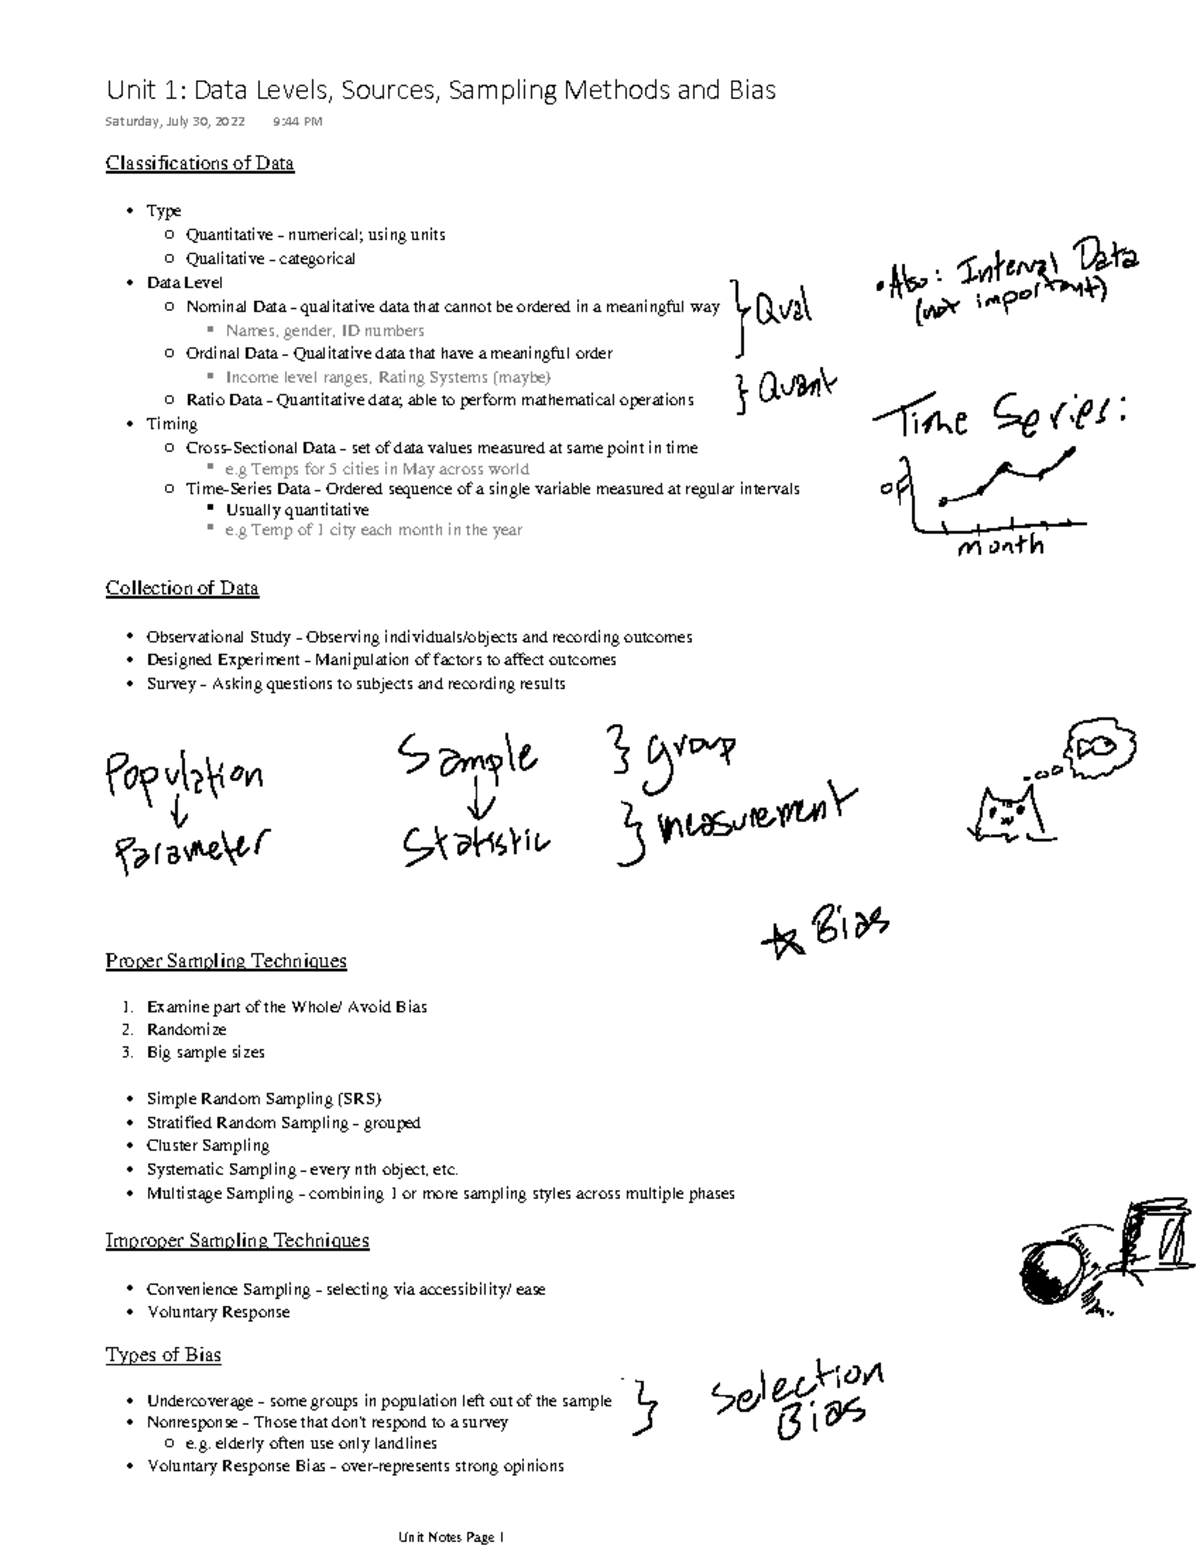 Unit 1: Data Levels, Sources, Sampling Methods and Bias
Saturday, July 30, 2022 9:44 PM
Classifications of Data
• Type
○ Quantitative - numerical; using units
○ Qualitative - categorical
• Data Level
○ Nominal Data - qualitative data that cannot be ordered in a meaningful way
▪ Names, gender, ID numbers
○ Ordinal Data - Qualitative data that have a meaningful order
▪ Income level ranges, Rating Systems (maybe)
○ Ratio Data - Quantitative data; able to perform mathematical operations
} Qual
} Quant
• Also: Interval Data
(not important)
• Timing
○ Cross-Sectional Data - set of data values measured at same point in time
▪ e.g Temps for 5 cities in May across world
○ Time-Series Data - Ordered sequence of a single variable measured at regular intervals
▪ Usually quantitative
▪ e.g Temp of 1 city each month in the year
Time Series:
°F
month
Collection of Data
• Observational Study - Observing individuals/objects and recording outcomes
• Designed Experiment - Manipulation of factors to affect outcomes
• Survey - Asking questions to subjects and recording results
Population Sample } group
↓ ↓
Parameter Statistic } measurement
☆ Bias
Proper Sampling Techniques
1. Examine part of the Whole/ Avoid Bias
2. Randomize
3. Big sample sizes
• Simple Random Sampling (SRS)
• Stratified Random Sampling - grouped
• Cluster Sampling
• Systematic Sampling - every nth object, etc.
• Multistage Sampling - combining 1 or more sampling styles across multiple phases
Improper Sampling Techniques
• Convenience Sampling - selecting via accessibility/ ease
• Voluntary Response
Types of Bias
• Undercoverage - some groups in population left out of the sample
} Selection
Bias
• Nonresponse - Those that don't respond to a survey
○ e.g. elderly often use only landlines
• Voluntary Response Bias - over-represents strong opinions
Unit Notes Page 1